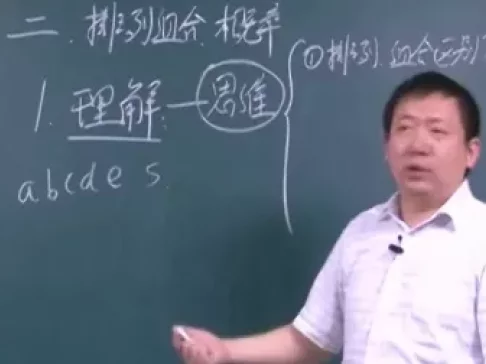 二. 排列组合. 概率
1. 理解 — 思维
① 排列. 组合(区别)
a b c d e s.